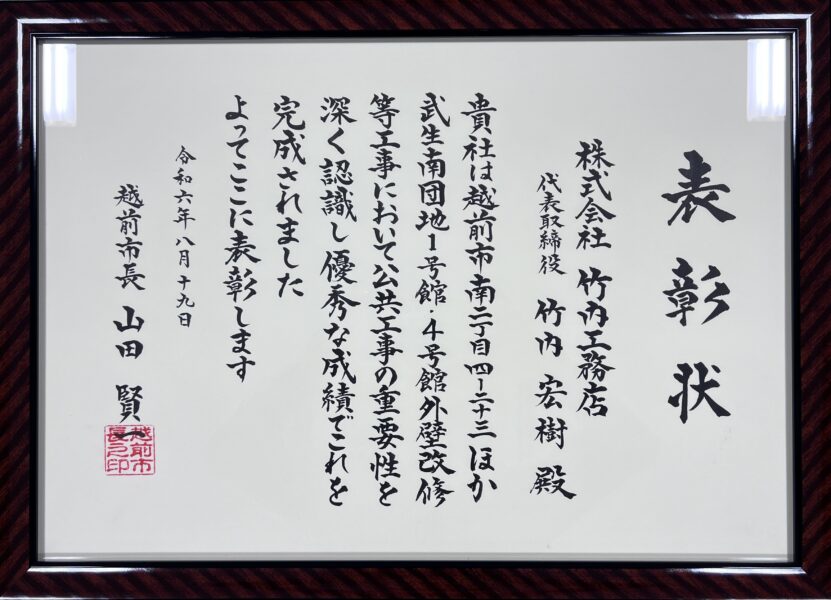 表彰状
株式会社 竹内工務店
代表取締役 竹内 宏樹 殿
貴社は越前市南二丁目四-二十三ほか
武生南団地1号館・4号館外壁改修
等工事において公共工事の重要性を
深く認識し優秀な成績でこれを
完成されました
よってここに表彰します
令和六年八月十九日
越前市長 山田 賢一
越前市
長之印